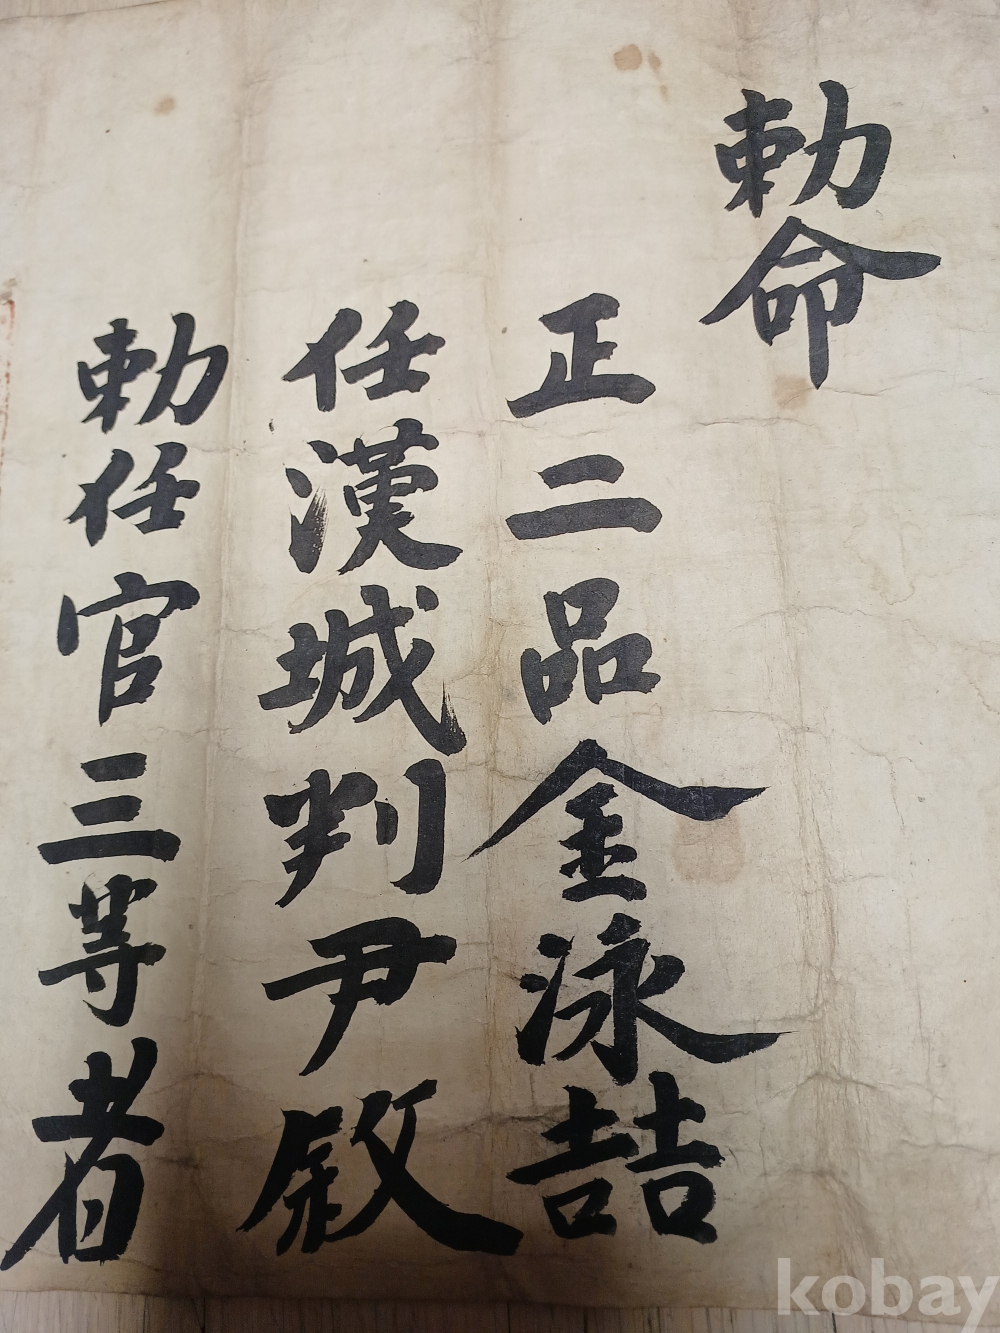 勅命
正二品金泳喆
任漢城判尹敍
勅任官三等者
kobay